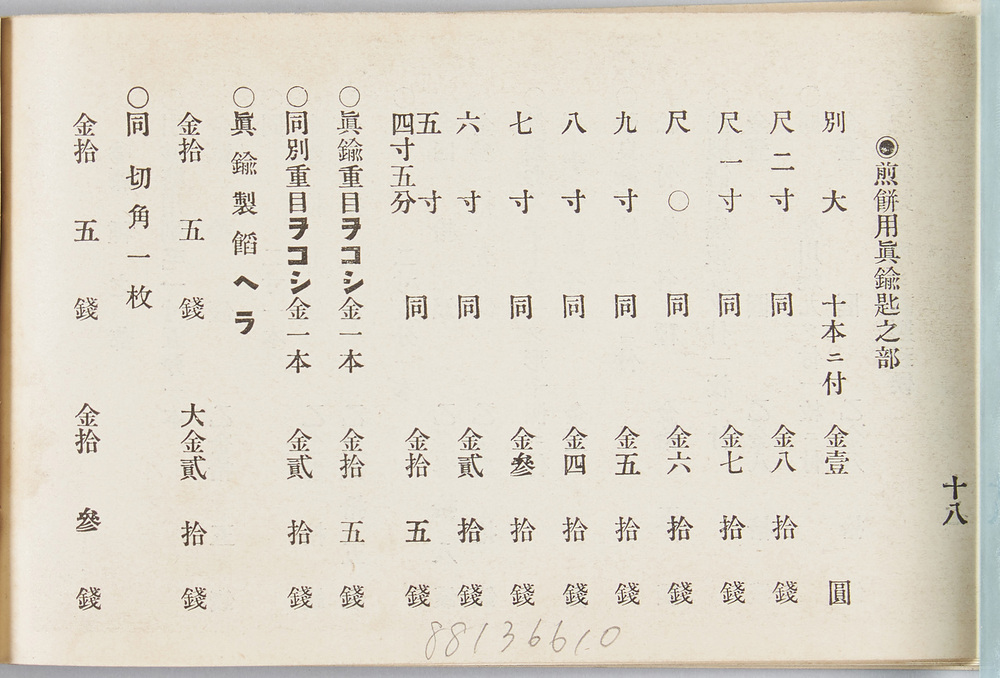 十八
◉煎餅用眞鍮匙之部
別大 十本ニ付 金壹圓
尺二寸 同 金八拾錢
尺一寸 同 金七拾錢
尺〇 同 金六拾錢
九寸 同 金五拾錢
八寸 同 金四拾錢
七寸 同 金參拾錢
六寸 同 金貳拾錢
五寸
四寸五分 同 金拾五錢
〇眞鍮重目ヲコシ金一本 金拾五錢
〇同別重目ヲコシ金一本 金貳拾錢
〇眞鍮製饀ヘラ
金拾五錢 大金貳拾錢
〇同切角一枚
金拾五錢 金拾參錢
88136610